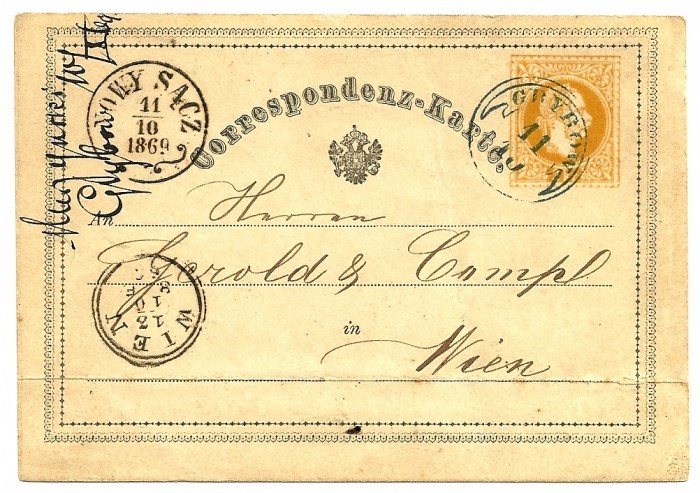 Correspondenz-Karte.
NOWY SĄCZ
11
10
1869
GRYBÓW
11
10
An Herren
Gerold & Compl
in
Wien
WIEN
12
10
Grybow 10/10 1869